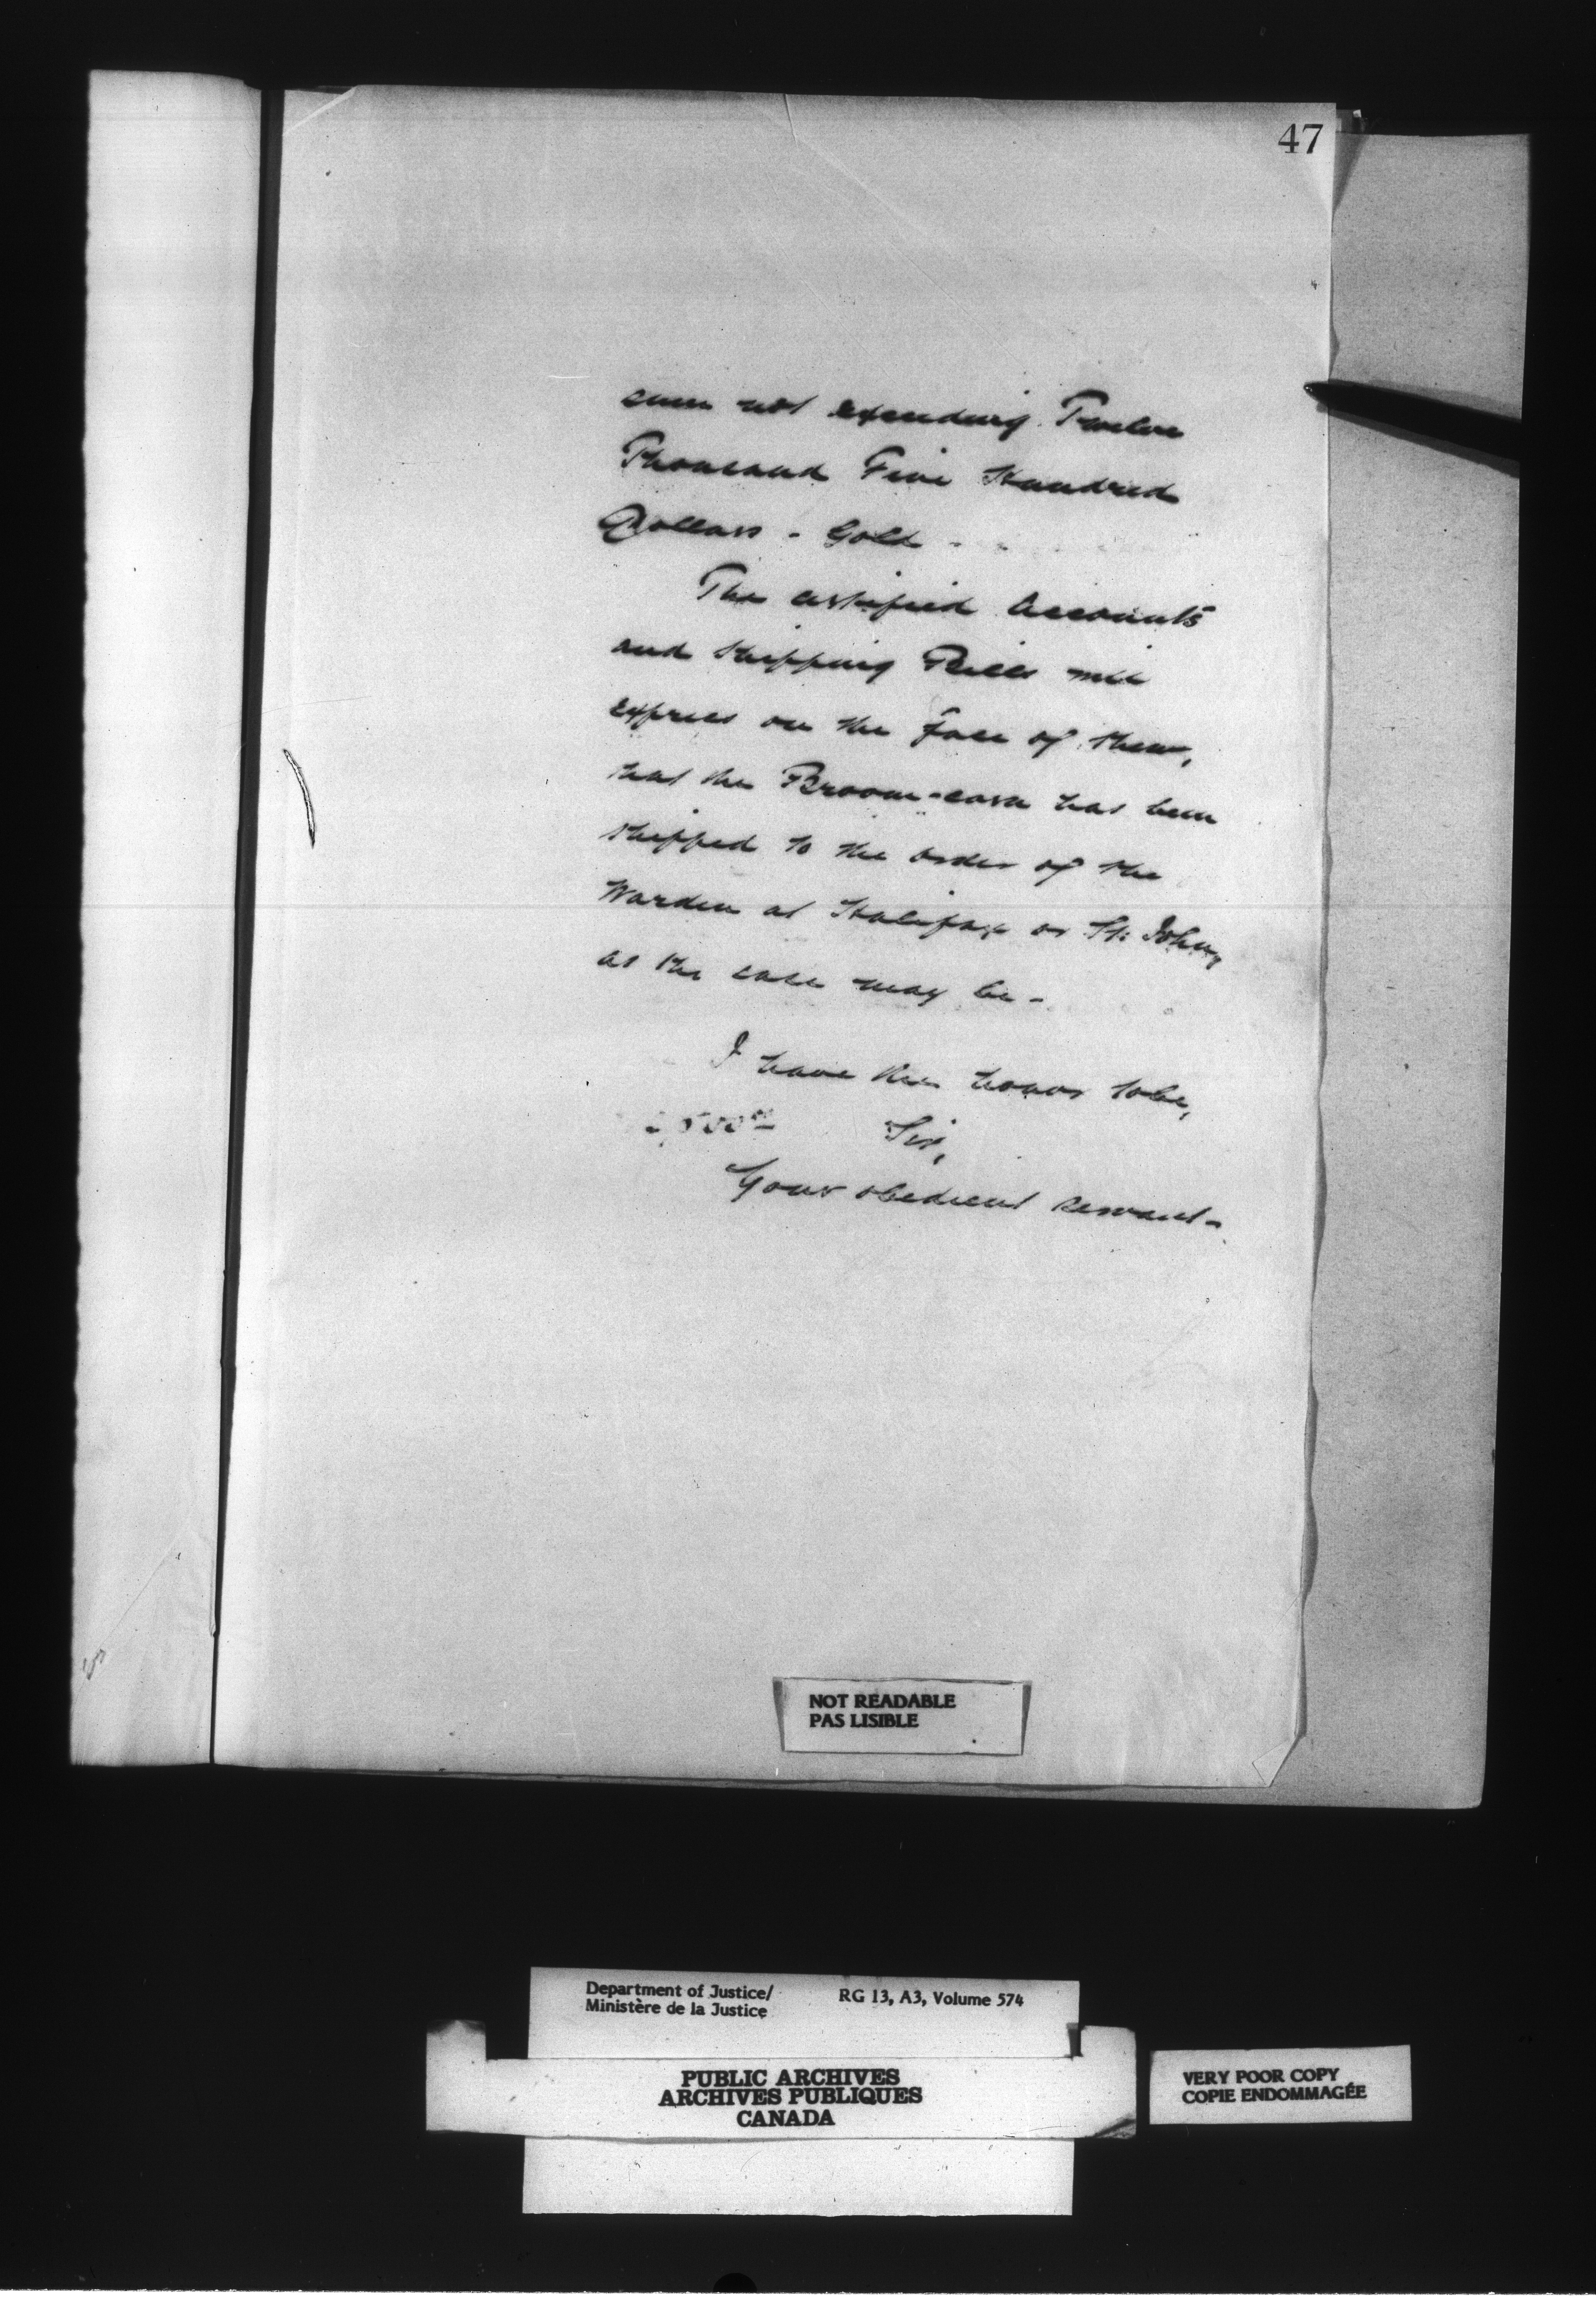 47
sum not exceeding Twelve
Thousand Five Hundred
Dollars - Gold -
The certified Accounts
and Shipping Bills will
express on the face of them,
that the Broom-corn has been
shipped to the order of the
Warden at Halifax or St: John,
as the case may be -
I have the honor to be,
Sir,
Your obedient servant -
NOT READABLE
PAS LISIBLE
Department of Justice/ RG 13, A3, Volume 574
Ministère de la Justice
PUBLIC ARCHIVES
ARCHIVES PUBLIQUES
CANADA
VERY POOR COPY
COPIE ENDOMMAGÉE